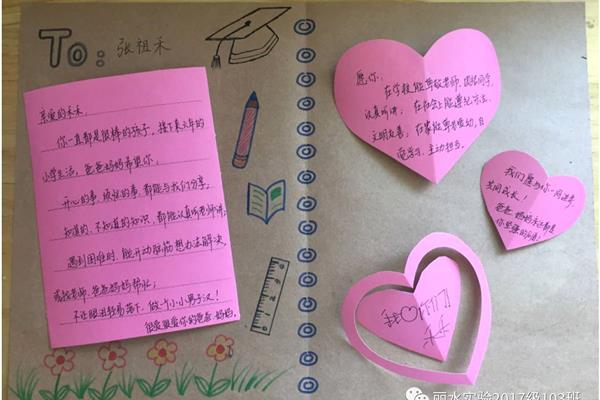 To: 张祖禾
亲爱的禾禾:
你一直都是很棒的孩子,接下来六年的
小学生活,爸爸妈妈希望你:
开心的事、烦恼的事,都能与我们分享。
知道的、不知道的知识,都能认真听老师讲;
遇到困难时,能开动脑筋想办法解决,
或找老师、爸爸妈妈帮忙;
不让眼泪轻易落下,做一个小小男子汉!
很爱很爱你的爸爸、妈妈
愿你:
在学校能尊敬老师,团结同学,
认真听讲;在社会上能遵纪守法、
文明友善;在家能尊长爱幼,自
觉学习,主动担当。
我们愿与你一同进步
共同成长!
爸爸、妈妈永远都是
你坚强的后盾!
禾禾
丽水实验2017级103班